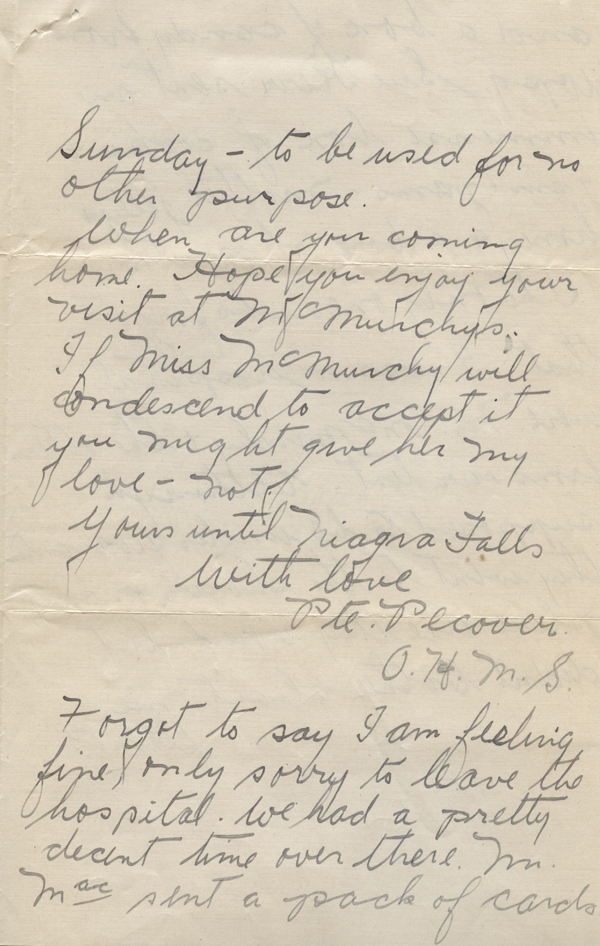 Sunday – to be used for no
other purpose.
When are you coming
home. Hope you enjoy your
visit at McMurchys.
If Miss McMurchy will
condescend to accept it
you might give her my
love – not!
Yours until Niagra Falls
With love
Pte. Pecover.
O.H.M.S.
Forgot to say I am feeling
fine, only sorry to leave the
hospital. We had a pretty
decent time over there. Mr.
Mac sent a pack of cards